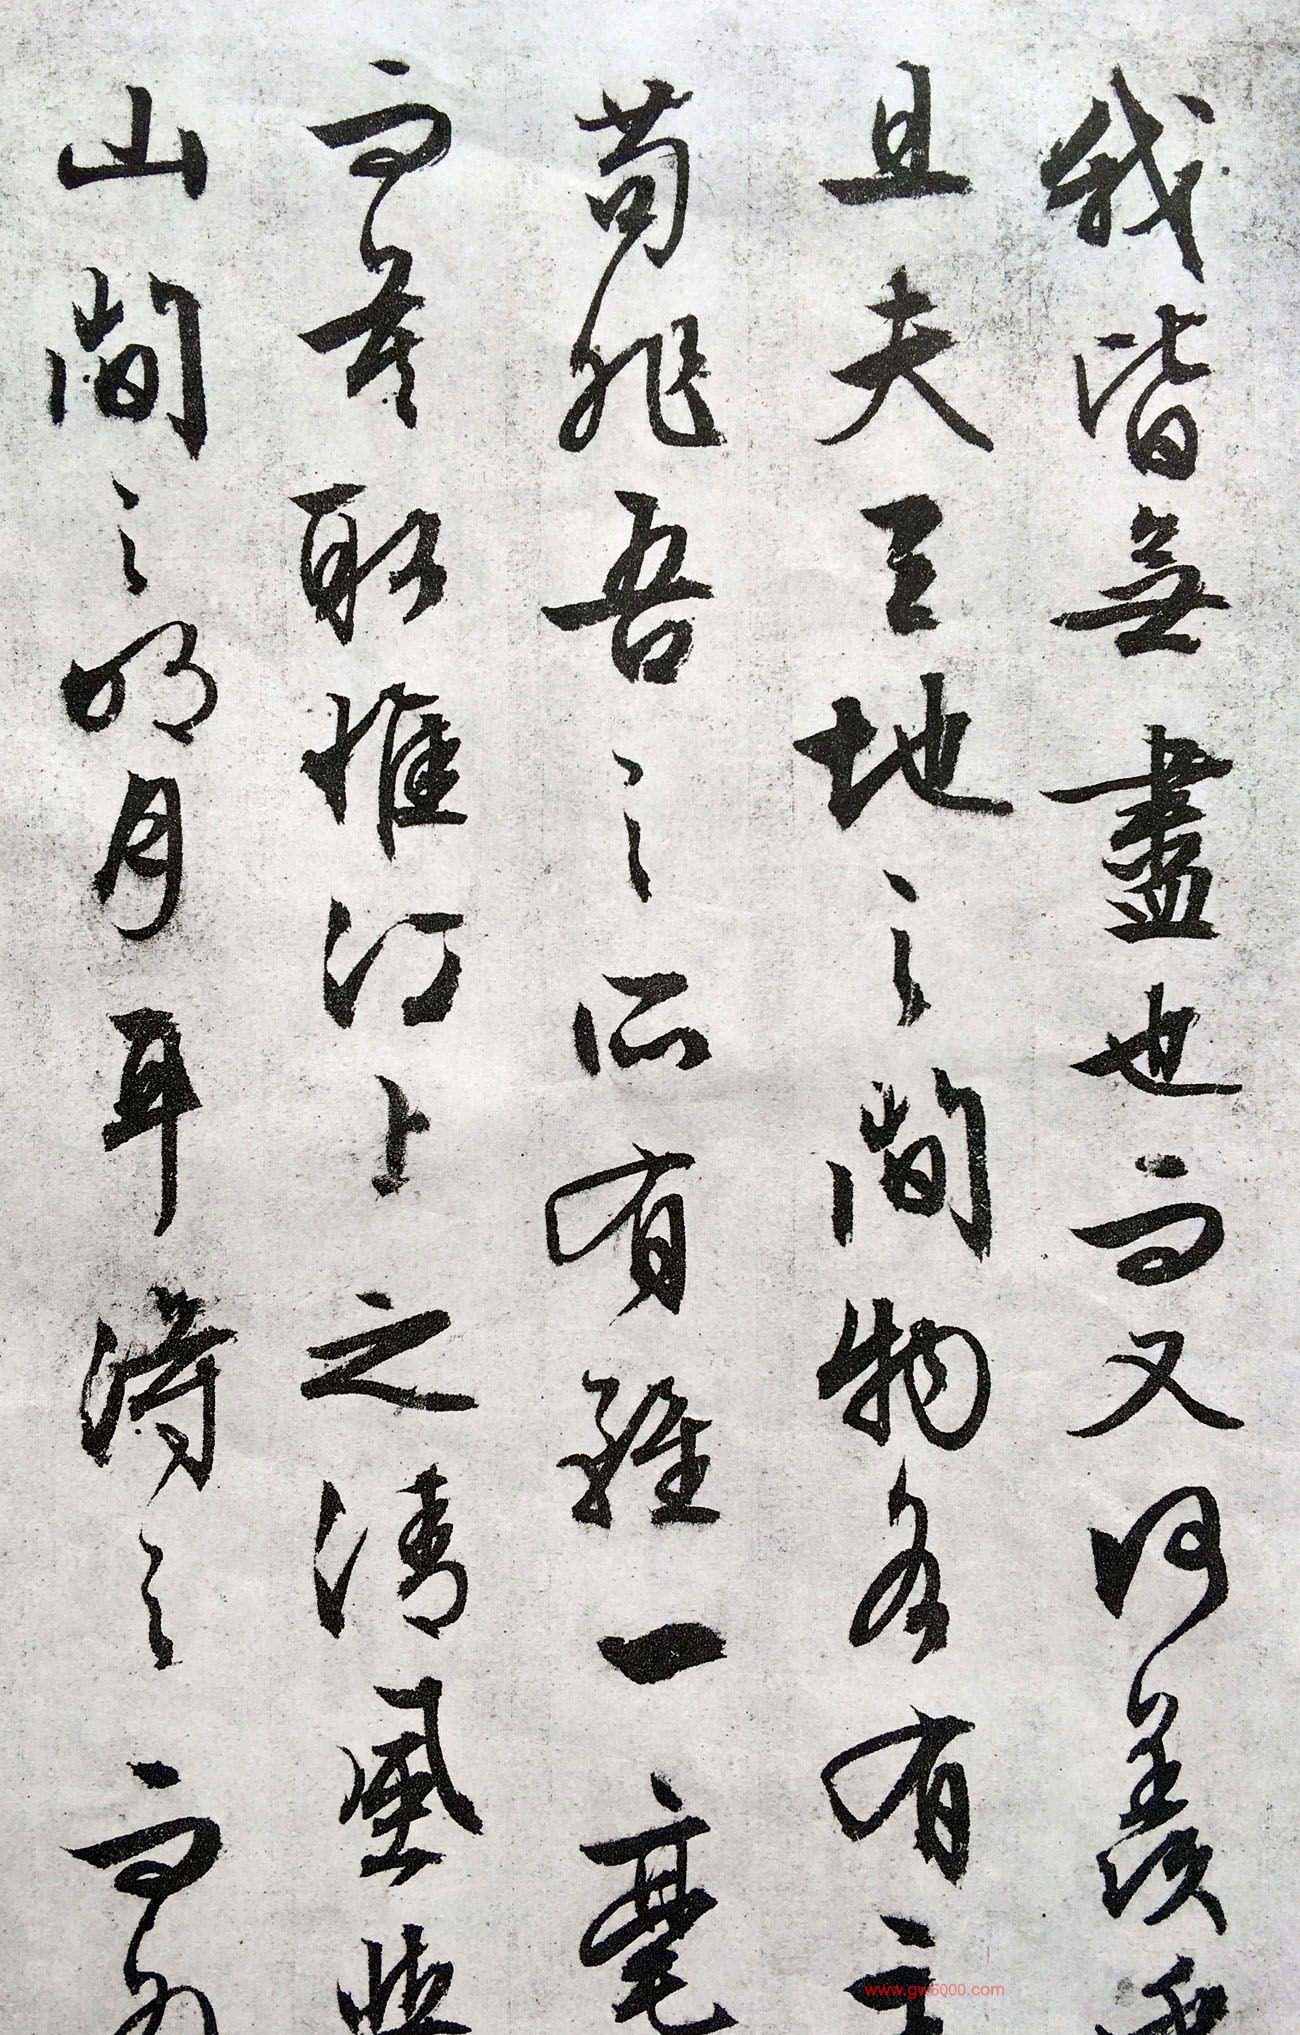 我皆無盡也而又何羨乎
且夫天地之間物各有主
苟非吾之所有雖一毫
而莫取惟江上之清風與
山間之明月耳得之而為
www.gw6000.com